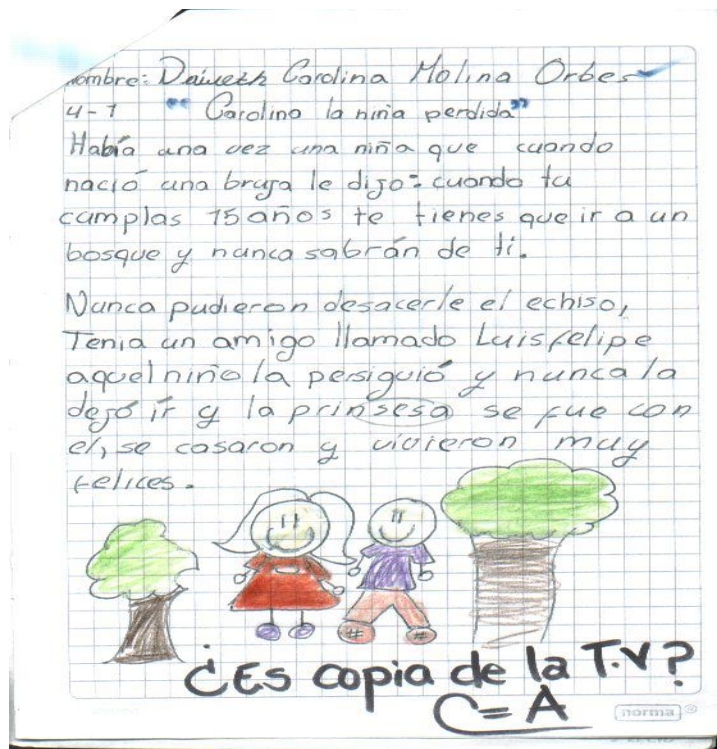 Nombre: Daiweth Carolina Molina Orbes
4-1 " Carolina la niña perdida"
Había una vez una niña que cuando
nació una bruja le dijo: cuando tu
cumplas 15 años te tienes que ir a un
bosque y nunca sabrán de ti.
Nunca pudieron desacerle el echiso,
Tenia un amigo llamado Luisfelipe
aquel niño la persiguió y nunca la
dejó ir y la prinsesa se fue con
el, se casaron y vivieron muy
felices.
¿Es copia de la T.V?
C=A
norma